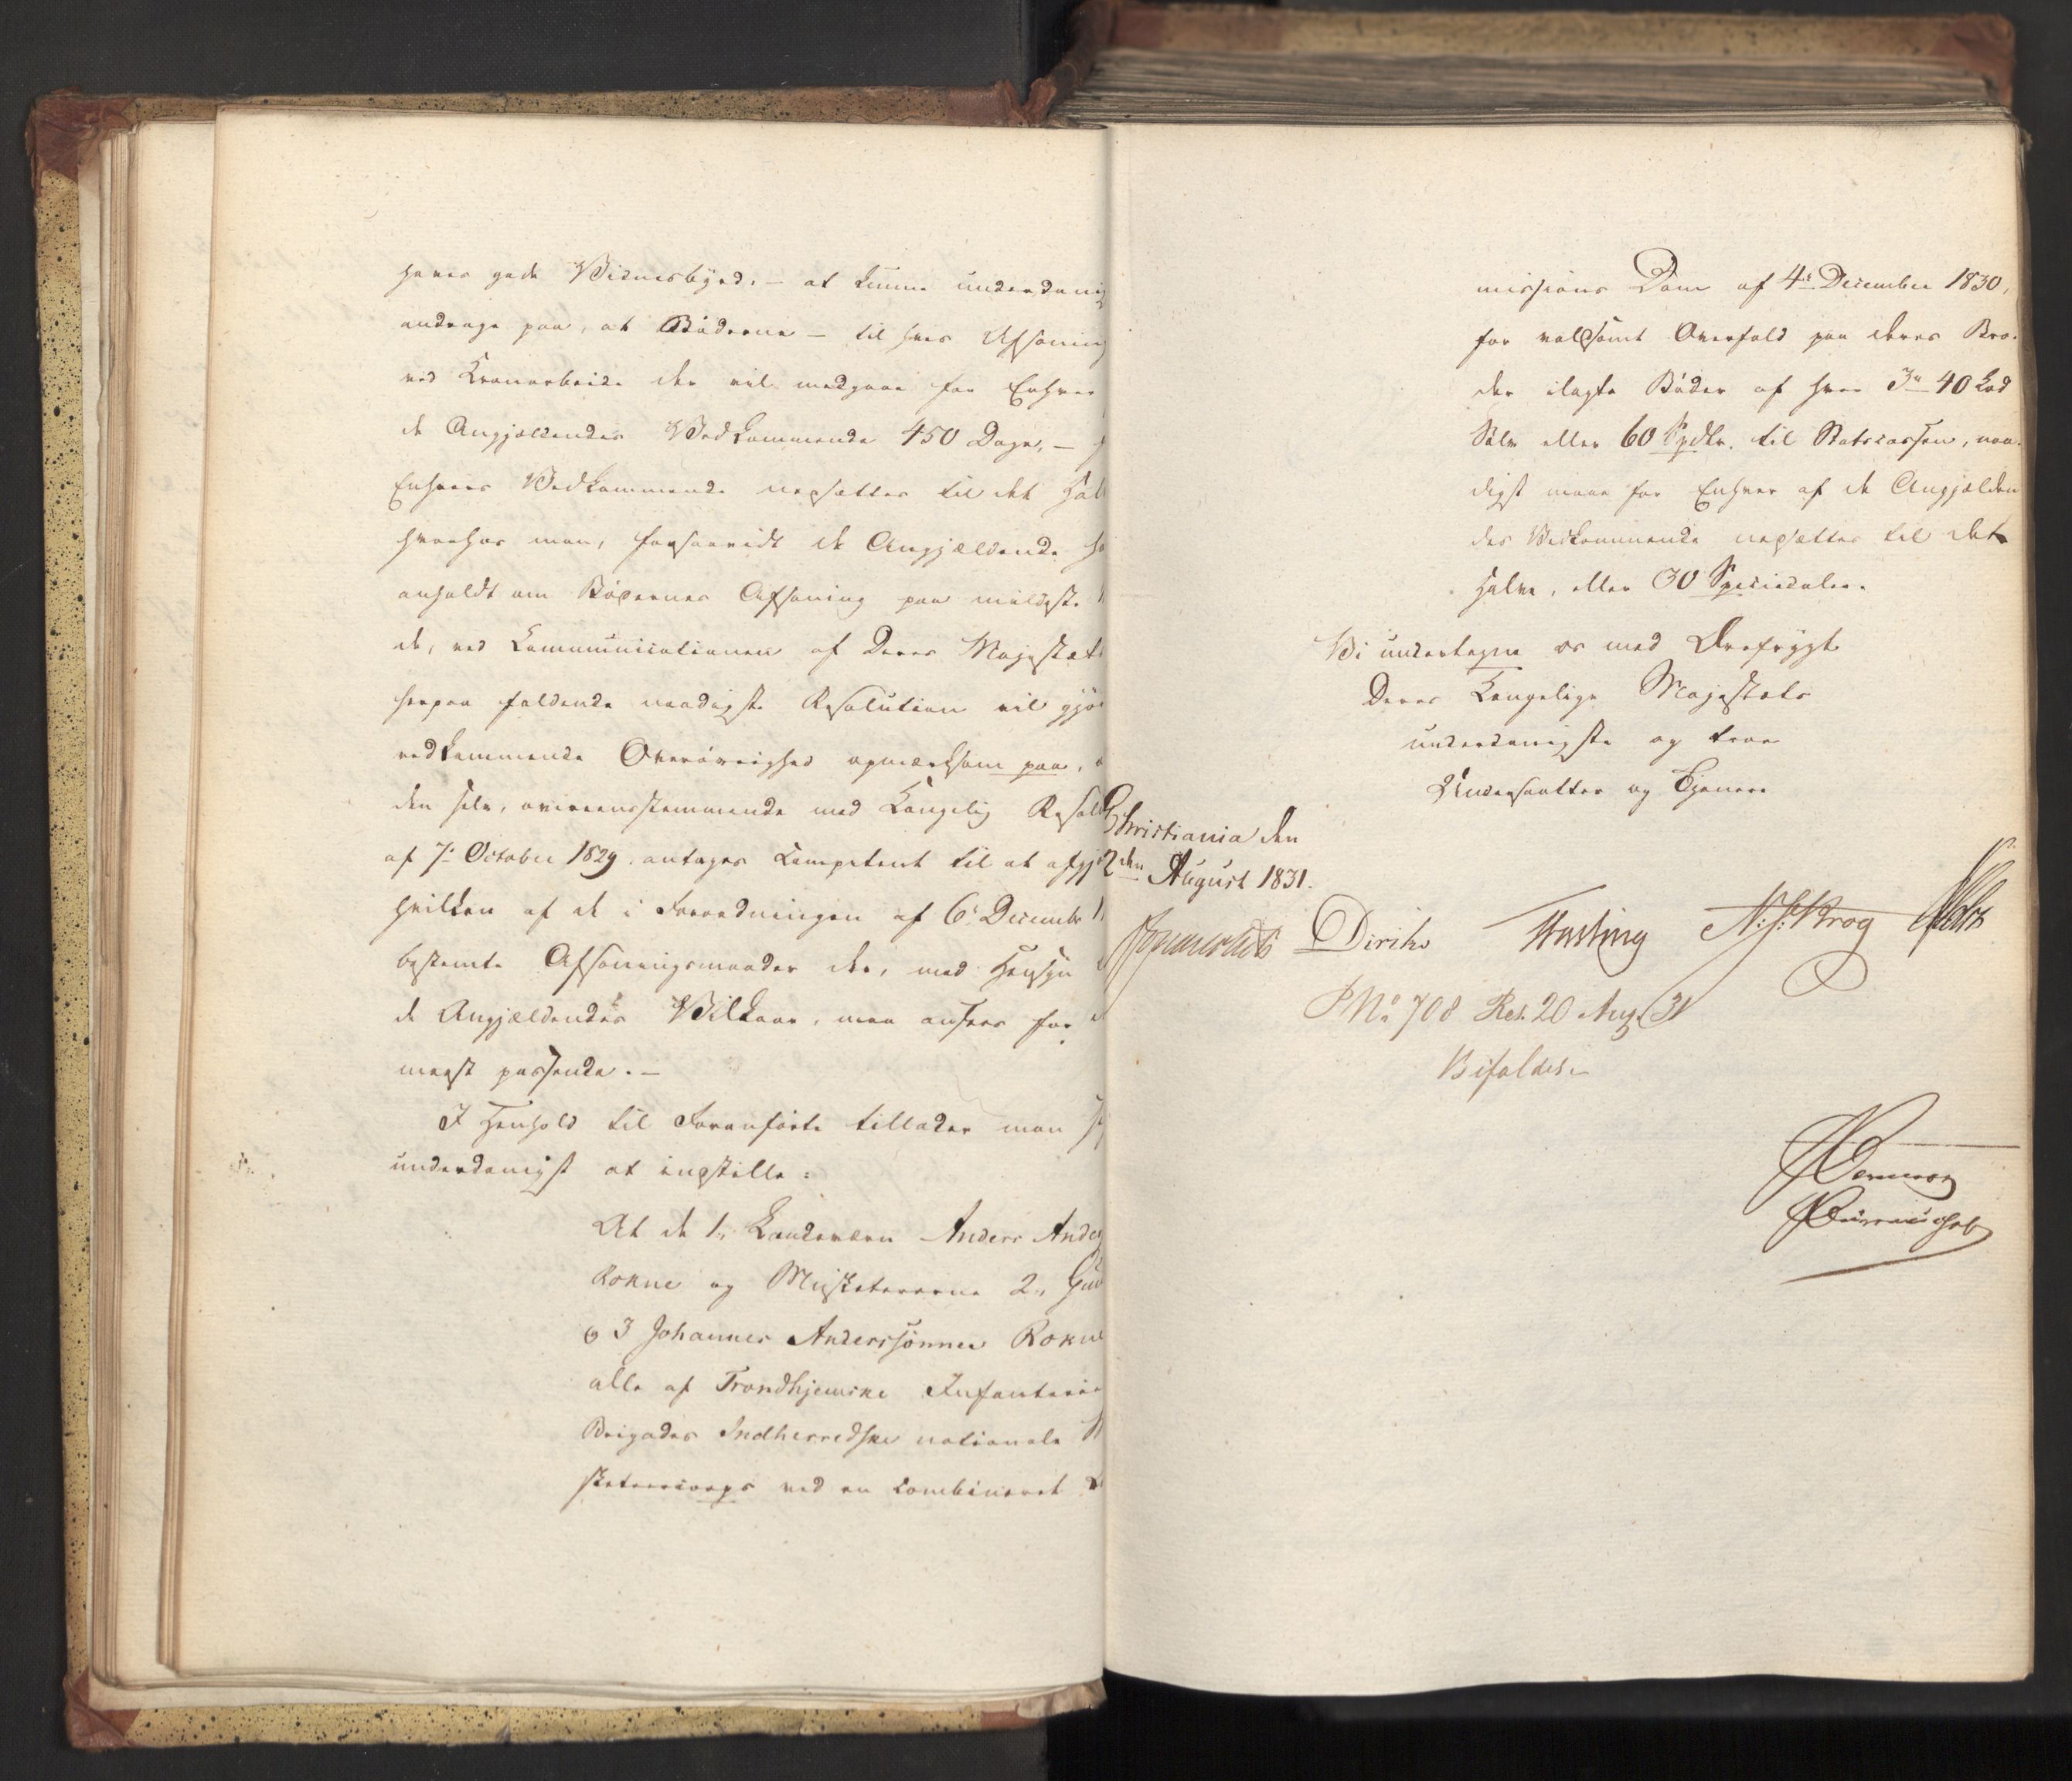 haves gode Vidnesbyrd. – at kunne underdanig
andrage paa, at Bøderne – til hvis Afsoning
ved Kronarbeide der vil medgaae for Enhver
de Angjældendes Vedkommende 450 Dage, –
Enhvers Vedkommende nedsættes til det Hal
hvorhos man, forsaavidt de Angjældende ha
anholdt om Bødernes Afsoning paa mildeste
de, ved Communicationen af Deres Majestæts
herpaa faldende naadigste Resolution vil gjø
vedkommende Overøvrighed opmærksom paa,
den selv, overeensstemmende med Kongelig Resol
af 7de October 1829. antages competent til at afgjø
hvilken af de i Forordningen af 6te Decembr 1
bestemte Afsoningsmaader der, med Hensyn
de Angjældendes Vilkaar, maa ansees for
meest passende. –
I Henhold til Foranførte tillader man
underdanigst at indstille:
At de 1., Landeværn Anders Anders
Rokne og Musketererne 2., Gun
og 3 Johannes Anderssønner Rokne
alle af Trondhjemske Infanterie
Brigades Indherredske nationale M
sketeercorps ved en combineret
missions Dom af 4de December 1830,
for voldsomt Overfald paa deres Bro-
der ilagte Bøder af hver 3de 40 Lod
Sølv eller 60 Spdlr. til Statscassen, naa-
digst maae for Enhver af de Angjælden
des Vedkommende nedsættes til det
Halve, eller 30 Speciedaler.
Vi undertegne os med Ærefrygt
Deres Kongelige Majestæts
underdanigste og troe
Undersaatter og Tjenere
Christiania den
2den August 1831.
Diriks Hasting N: J: Krog
P No 708 Res. 20 Aug 31
Bifaldes.